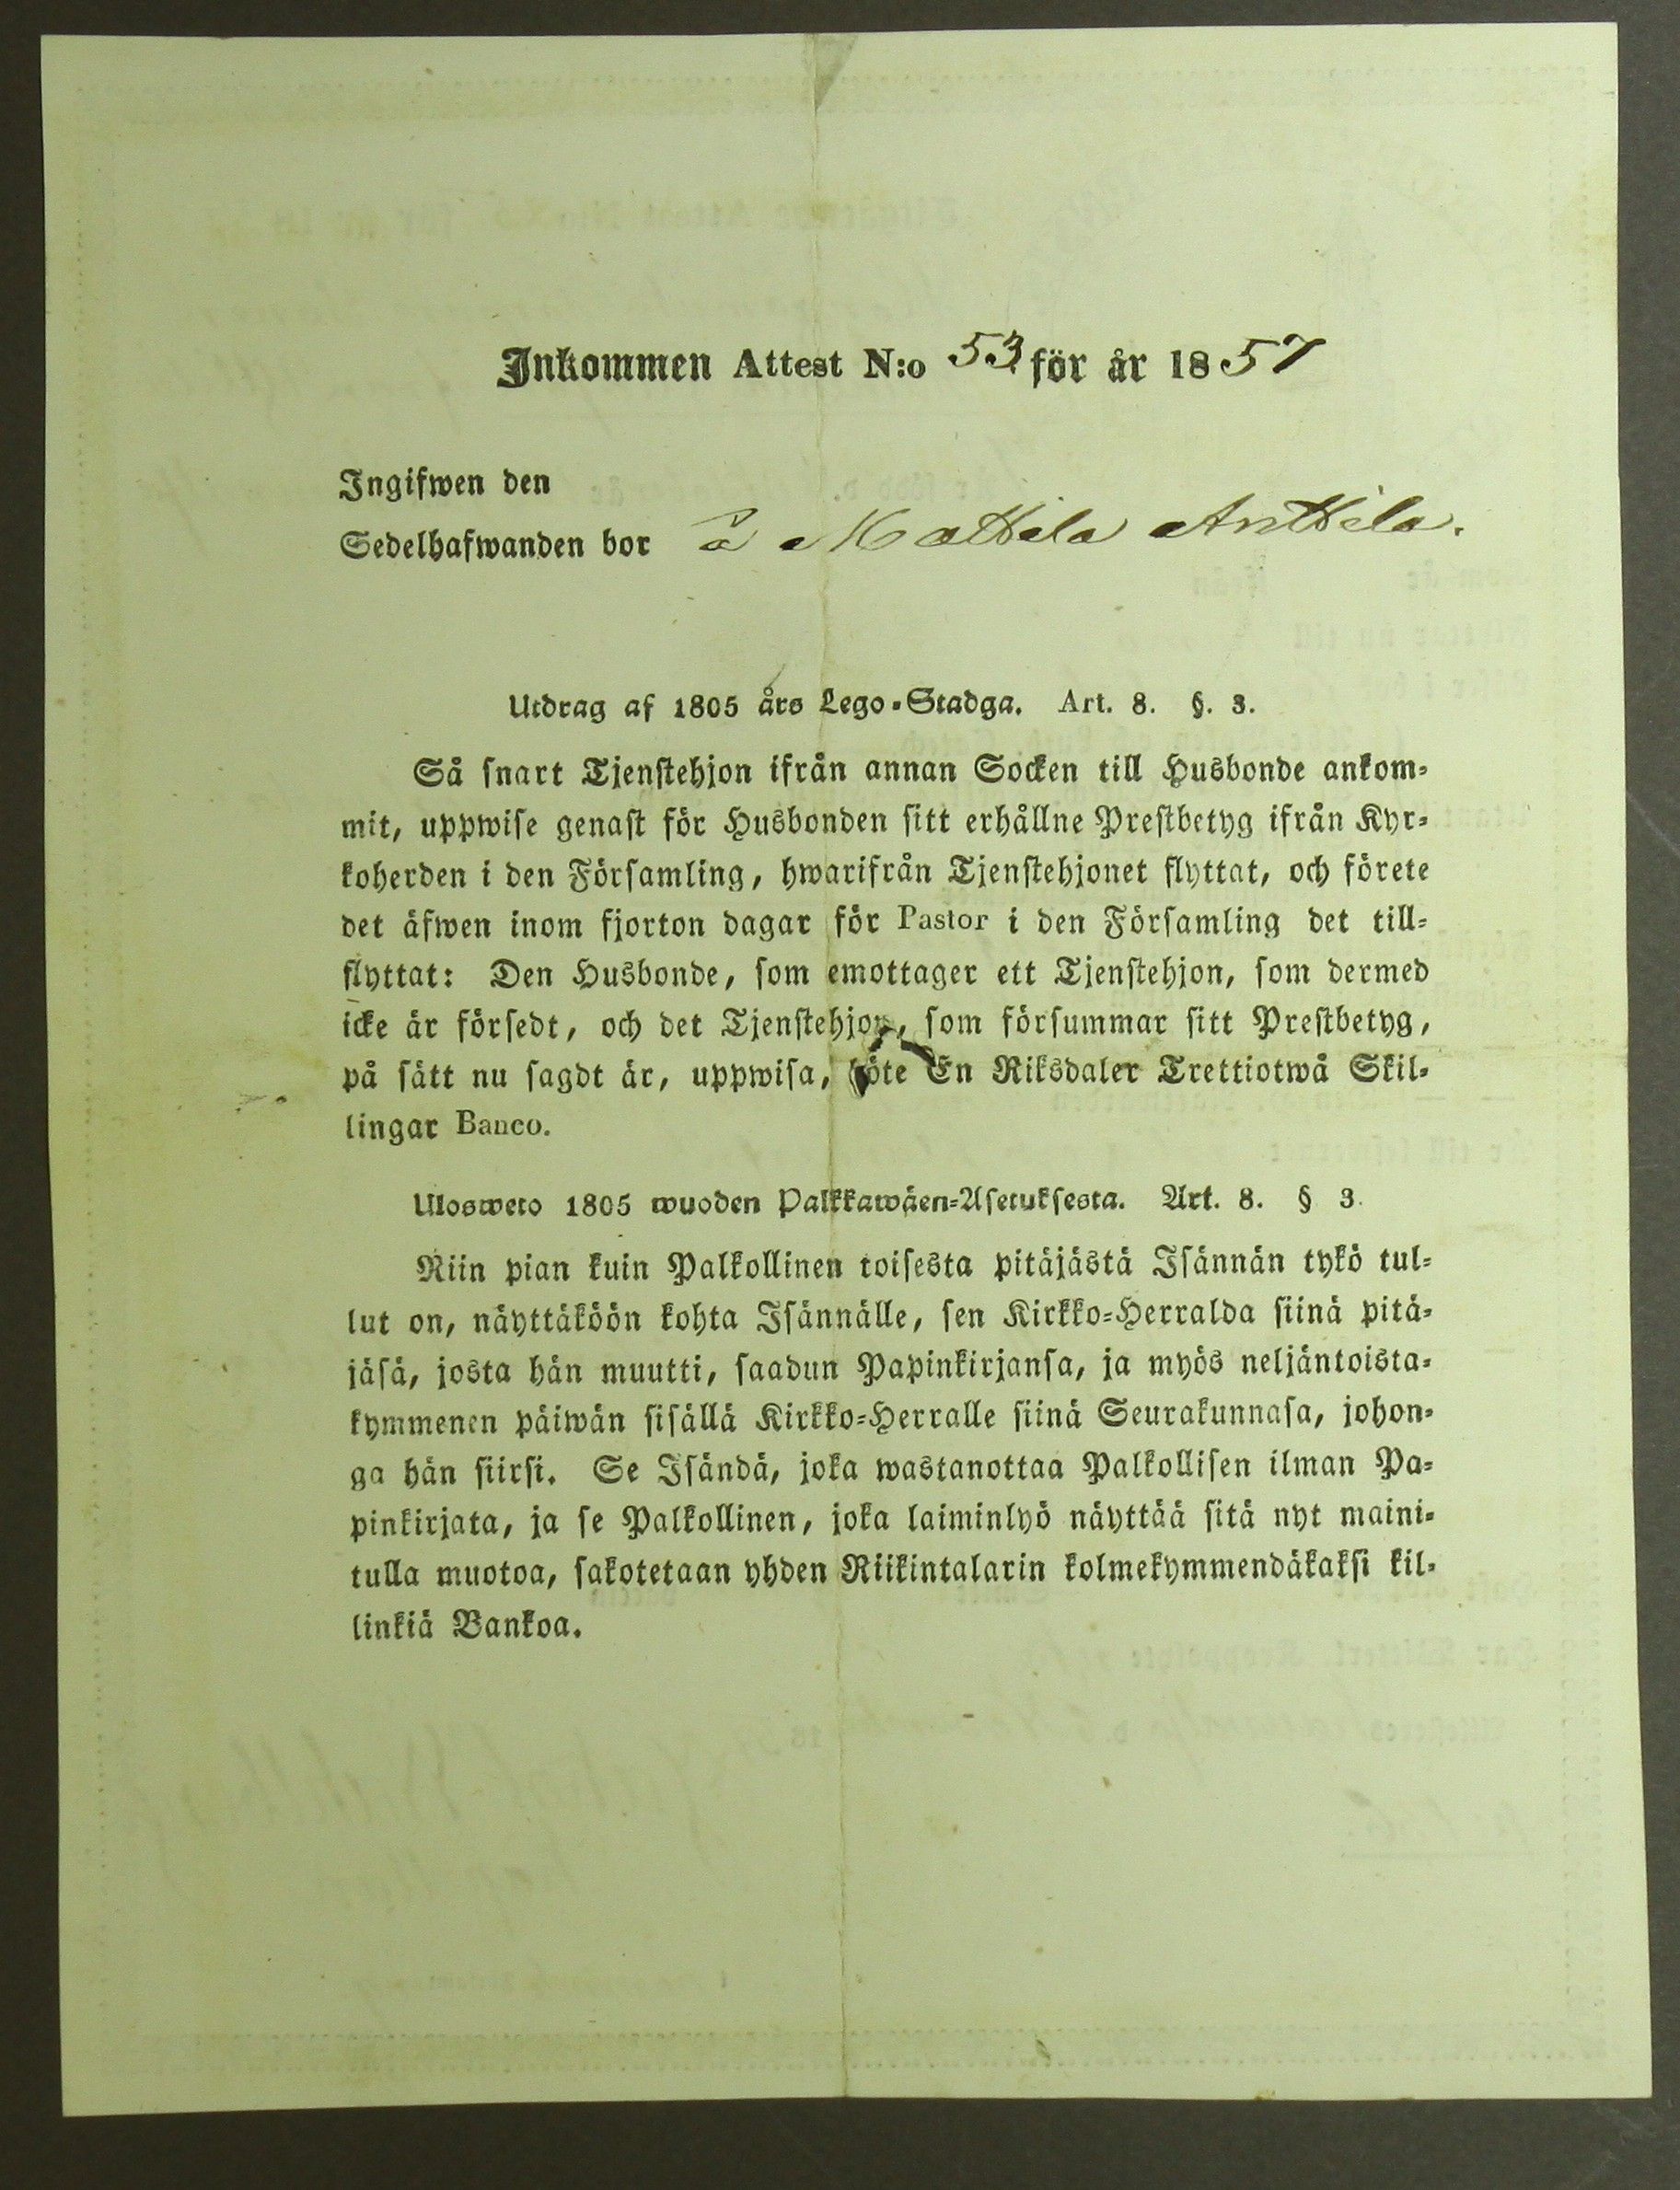 Inkommen Attest N:o 53 för år 1857
Ingifwen den
Sedelhafwanden bor å Mattila Anttila.
Utdrag af 1805 års Lego-Stadga. Art. 8. §. 3.
Så snart Tjenstehjon ifrån annan Socken till Husbonde ankom-
mit, uppwise genast för Husbonden sitt erhållne Prestbetyg ifrån Kyr-
koherden i den Församling, hwarifrån Tjenstehjonet flyttat, och förete
det äfwen inom fjorton dagar för Pastor i den Församling det till-
flyttat: Den Husbonde, som emottager ett Tjenstehjon, som dermed
icke är försedt, och det Tjenstehjon, som försummar sitt Prestbetyg,
på sätt nu sagdt är, uppwisa, böte En Riksdaler Trettiotwå Skil-
lingar Banco.
Ulosweto 1805 wuoden Palkkawäen-Asetuksesta. Art. 8. § 3.
Niin pian kuin Palkollinen toisesta pitäjästä Isännän tykö tul-
lut on, näyttäköön kohta Isännälle, sen Kirkko-Herralda siinä pitä-
jäsä, josta hän muutti, saadun Papinkirjansa, ja myös neljäntoista-
kymmenen päiwän sisällä Kirkko-Herralle siinä Seurakunnasa, johon-
ga hän siirsi. Se Isändä, joka wastanottaa Palkollisen ilman Pa-
pinkirjata, ja se Palkollinen, joka laiminlyö näyttää sitä nyt maini-
tulla muotoa, sakotetaan yhden Riikintalarin kolmekymmendäkaksi kil-
linkiä Bankoa.